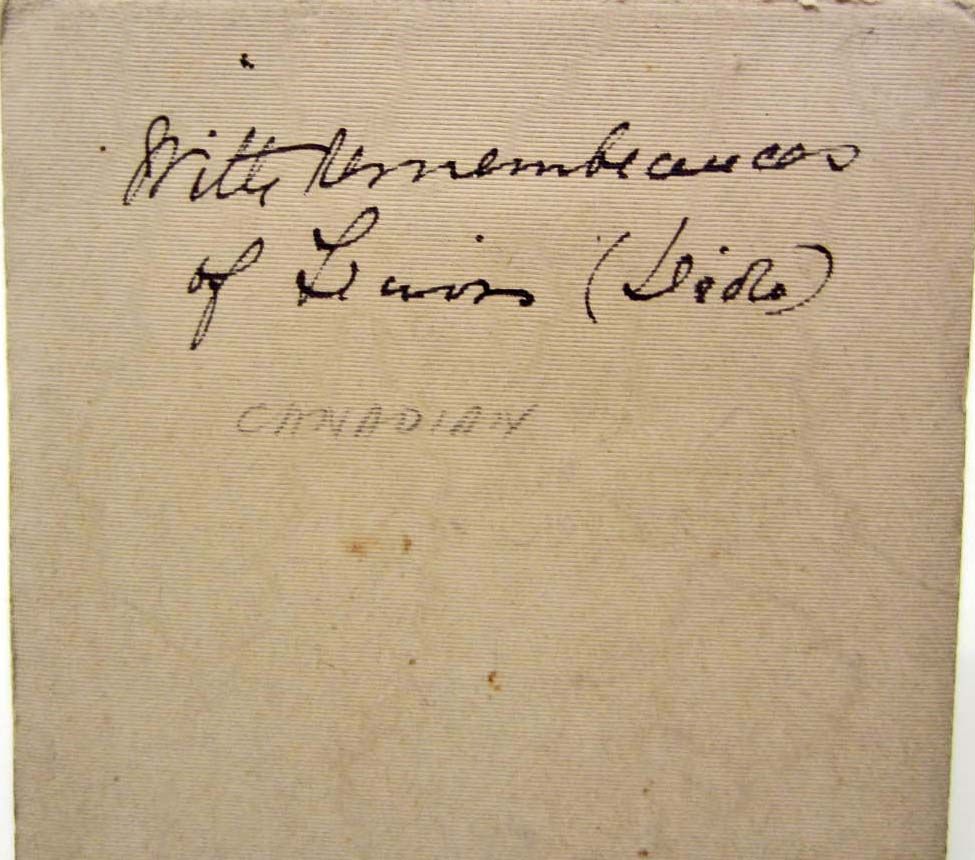 With Remembrances
of Lewis (
CANADIAN